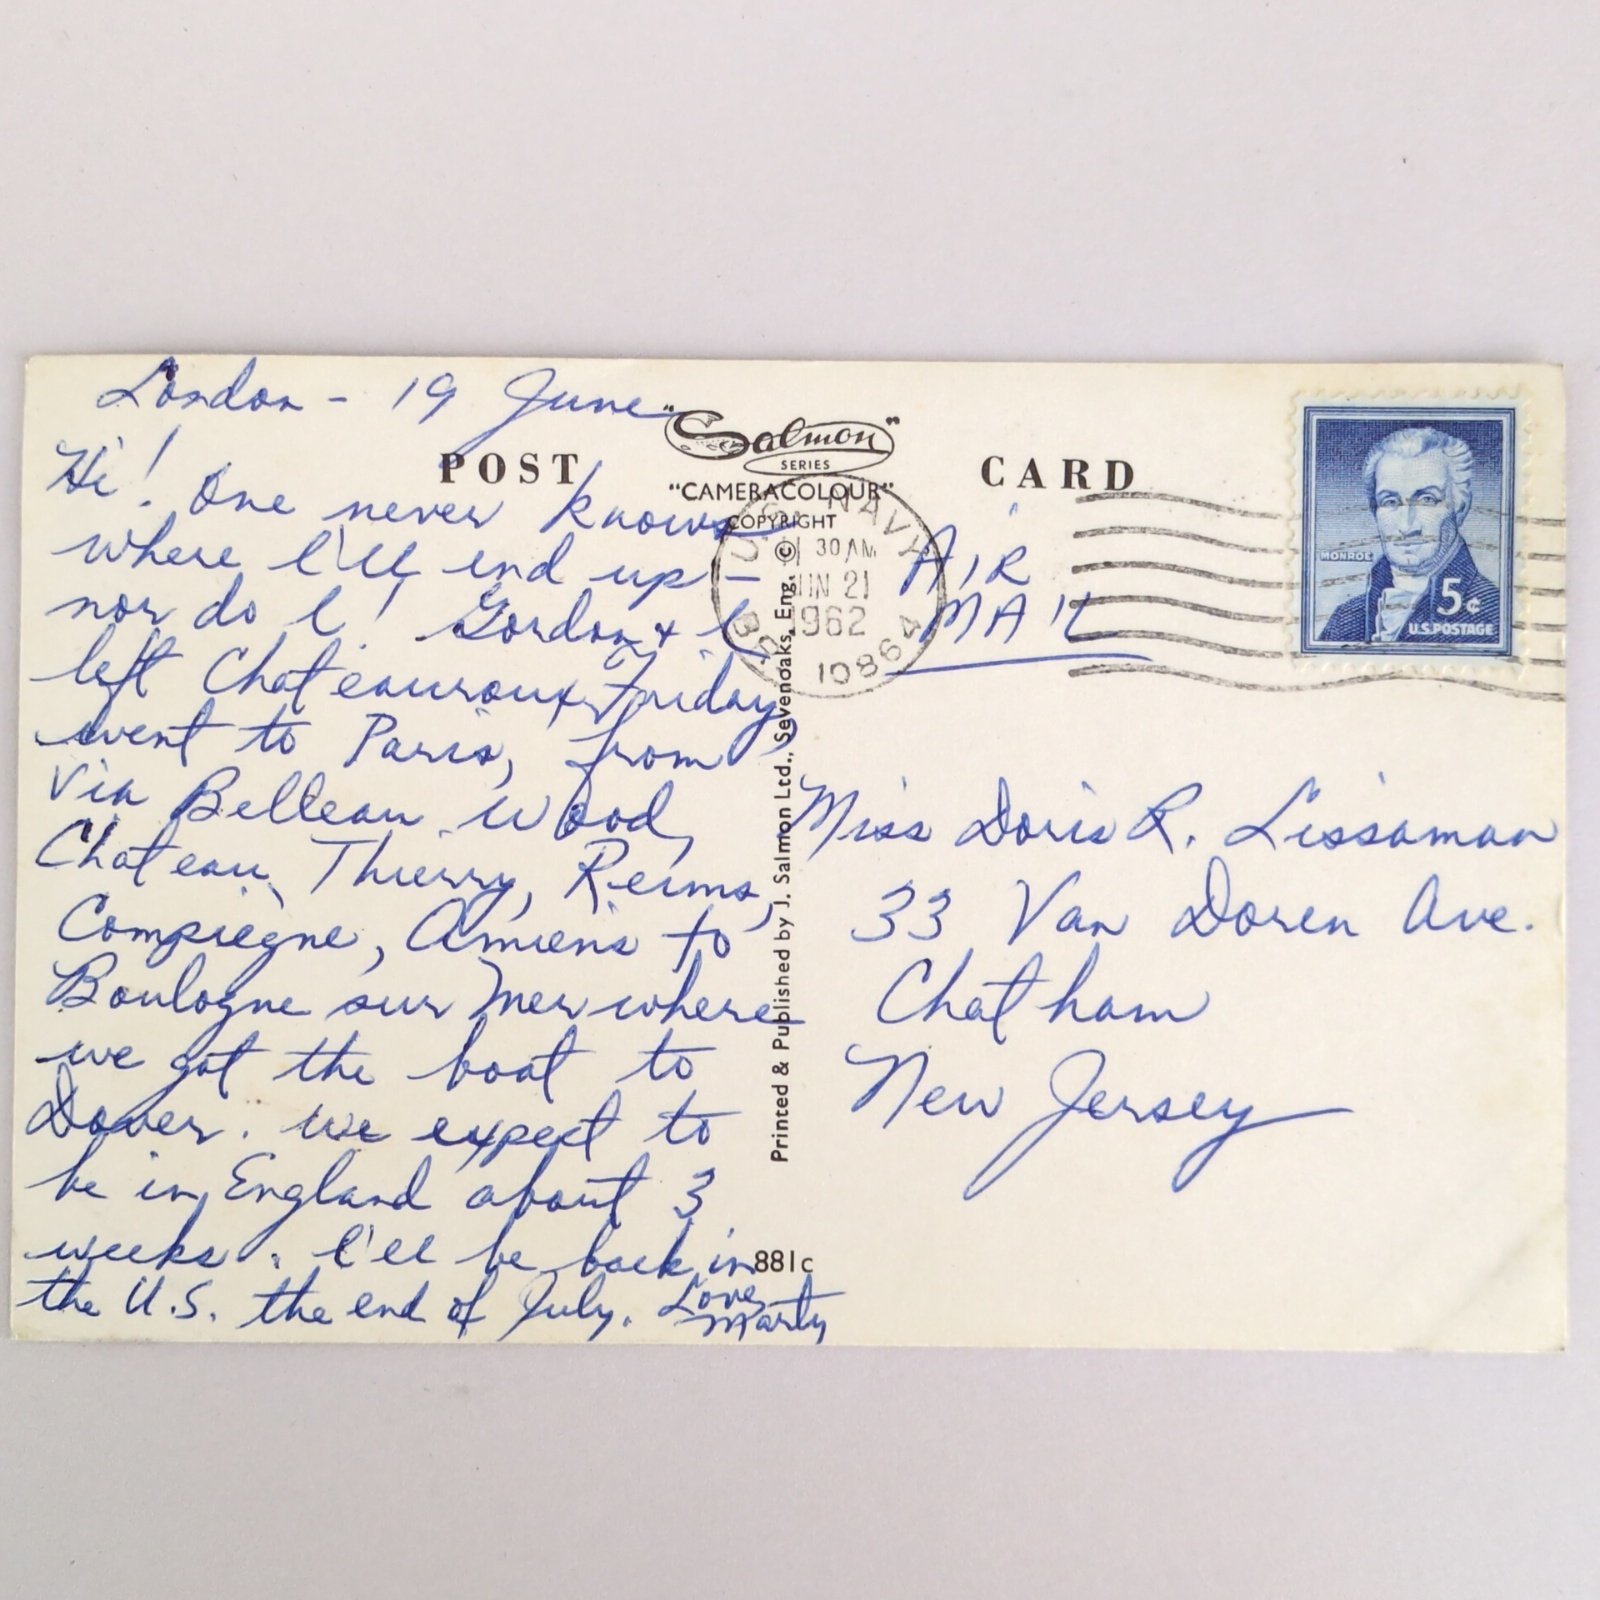 London - 19 June
Hi! One never knows
where I'll end up -
nor do I! Gordon & I
left Chateauroux Friday,
went to Paris, from
via Belleau Wood,
Chateau Thierry, Reims,
Compiegne, Amiens to
Boulogne sur Mer where
we got the boat to
Dover. We expect to
be in England about 3
weeks. I'll be back in
the U.S. the end of July. Love,
Marty
POST CARD
"Salmon"
SERIES
"CAMERACOLOUR"
COPYRIGHT
Printed & Published by J. Salmon Ltd., Sevenoaks, Eng. ©
881c
U.S. NAVY
30 AM
JUN 21
1962
10864
AIR
MAIL
MONROE
5¢
U.S. POSTAGE
Miss Doris R. Lissaman
33 Van Doren Ave.
Chatham
New Jersey